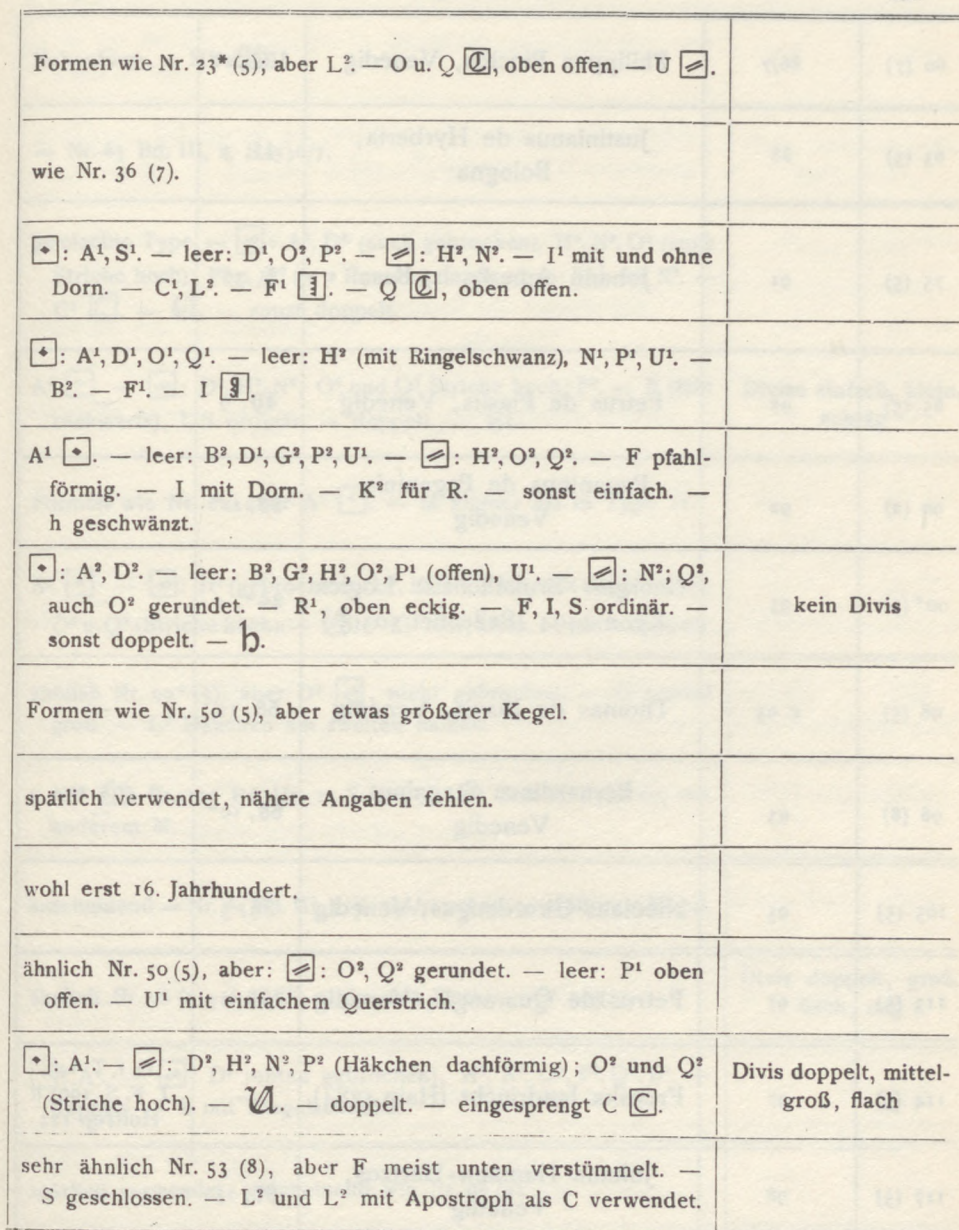 Formen wie Nr. 23* (5); aber L². — O u. Q, oben offen. — U.
wie Nr. 36 (7).
: A¹, S¹. — leer: D¹, O², P². — : H², N². — I¹ mit und ohne
Dorn. — C¹, L². — F¹. — Q, oben offen.
: A¹, D¹, O¹, Q¹. — leer: H² (mit Ringelschwanz), N¹, P¹, U¹. —
B². — F¹. — I.
A¹. — leer: B², D¹, G², P², U¹. — : H², O², Q². — F pfahl-
förmig. — I mit Dorn. — K² für R. — sonst einfach. —
h geschwänzt.
: A², D². — leer: B², G², H², O², P¹ (offen), U¹. — : N²; Q²,
auch O² gerundet. — R¹, oben eckig. — F, I, S ordinär. —
sonst doppelt. — h.
kein Divis
Formen wie Nr. 50 (5), aber etwas größerer Kegel.
spärlich verwendet, nähere Angaben fehlen.
wohl erst 16. Jahrhundert.
ähnlich Nr. 50 (5), aber: : O², Q² gerundet. — leer: P¹ oben
offen. — U¹ mit einfachem Querstrich.
: A¹. — : D², H², N², P² (Häkchen dachförmig); O² und Q²
(Striche hoch). — U. — doppelt. — eingesprengt C C.
Divis doppelt, mittel-
groß, flach
sehr ähnlich Nr. 53 (8), aber F meist unten verstümmelt. —
S geschlossen. — L² und L² mit Apostroph als C verwendet.